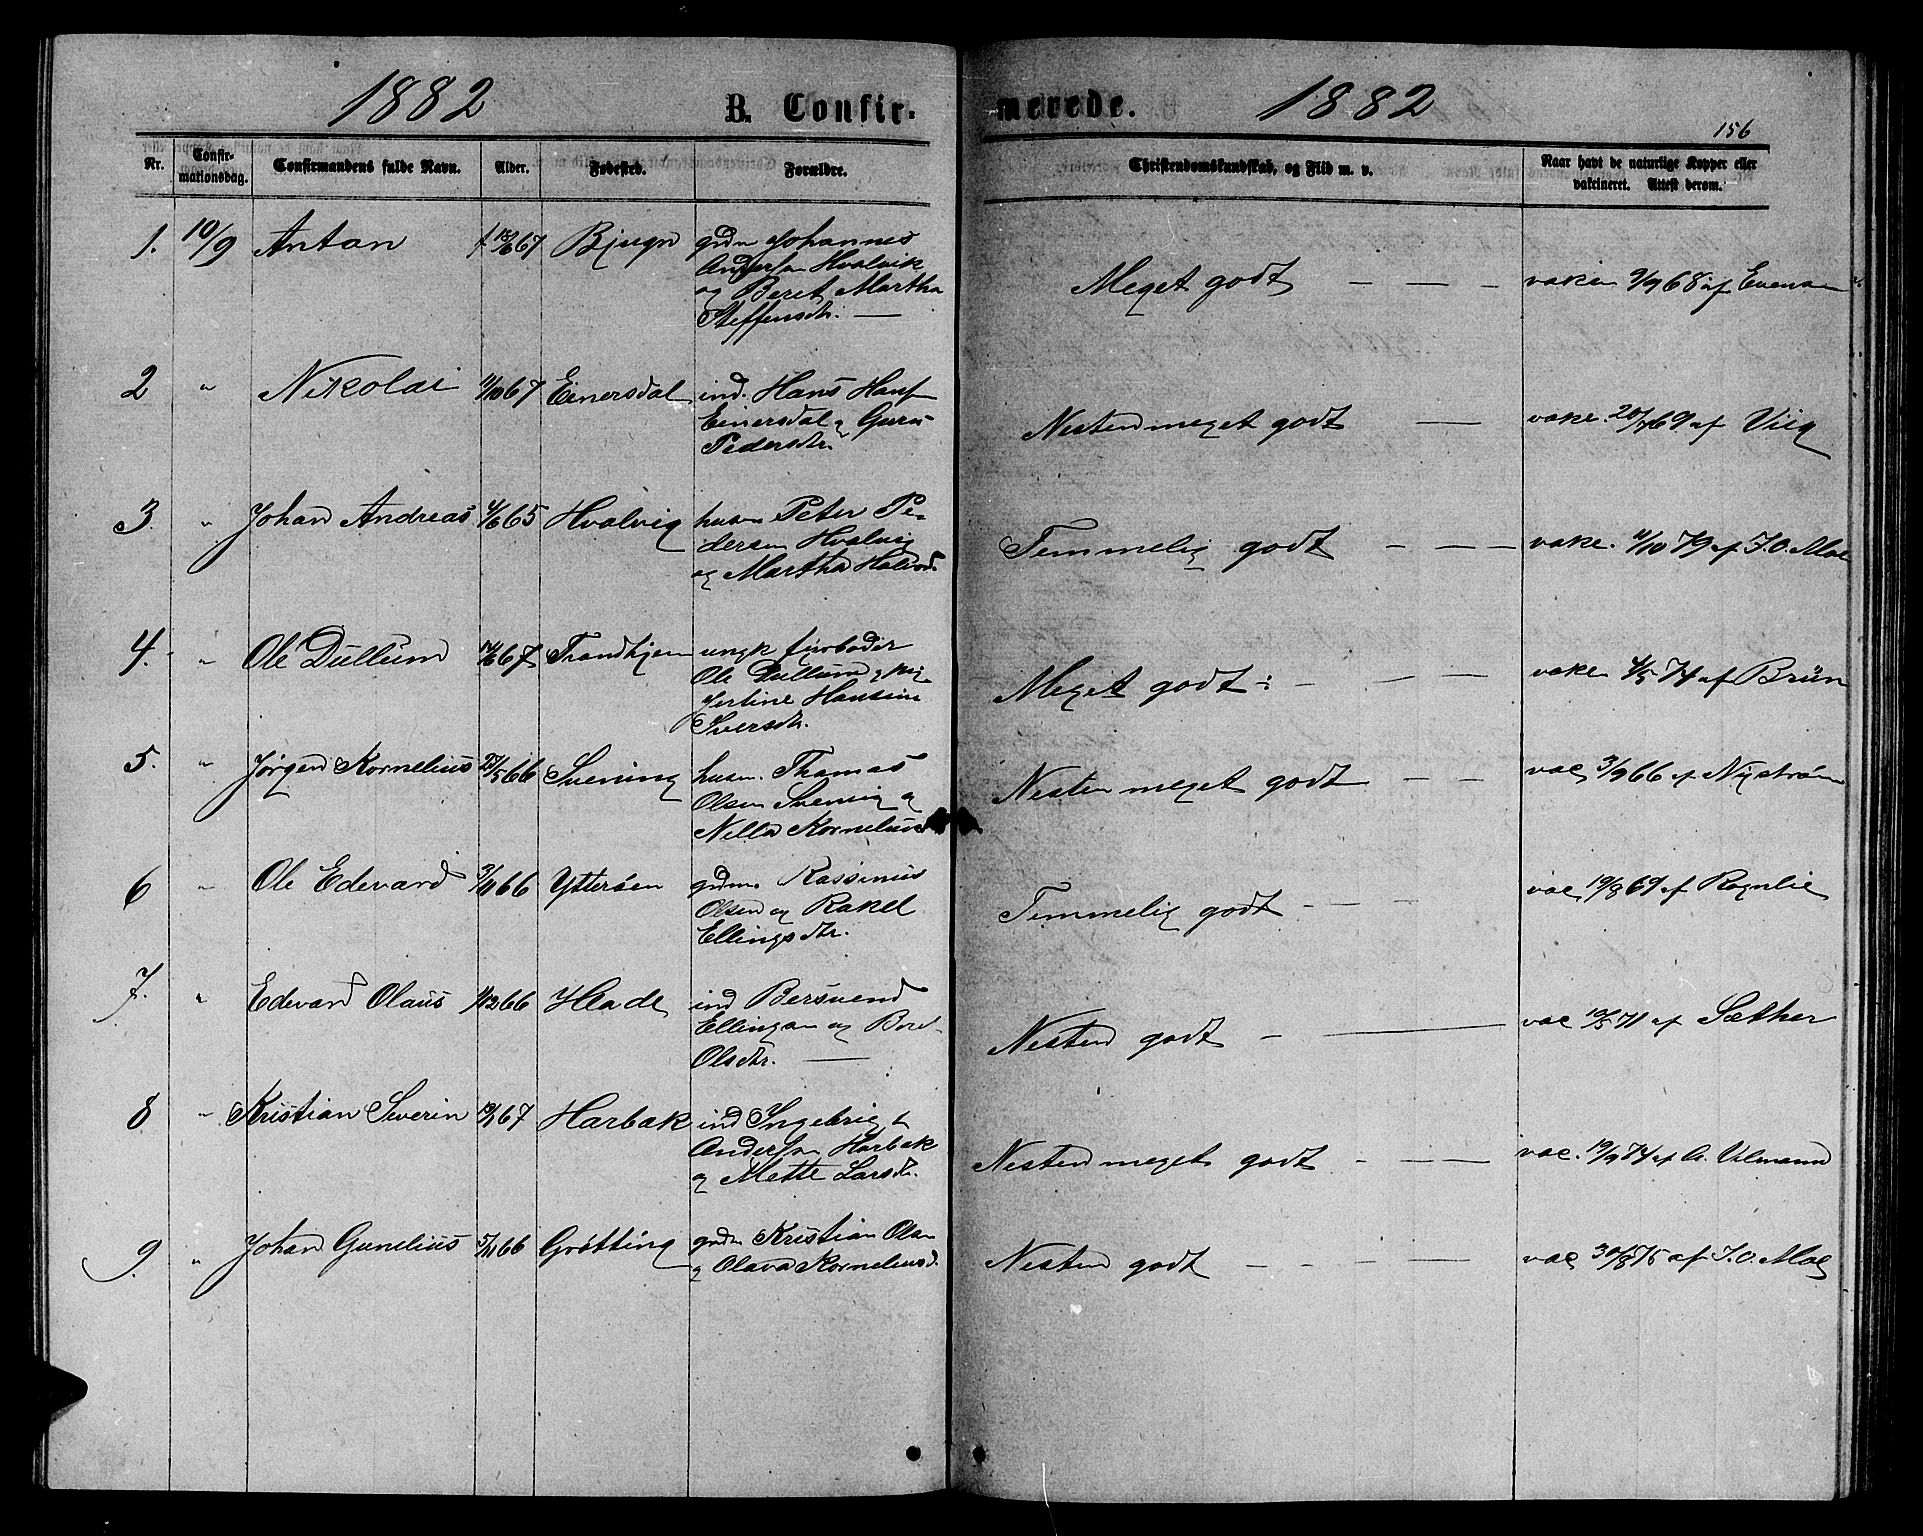 1882
B. Confirmerede.
1882
156
Nr.
Confirmationsdag.
Confirmandens fulde Navn.
Alder.
Fødested.
Forældre.
Christendomskundskab, og Flid m. v.
Naar havt de naturlige Kopper eller
vakcineret. Attest derom.
1. 10/9 Anton 67 Bjugn gdm Johannes
Andersen Hvalvik
og Beret Martha
Steffensdtr. —
Meget godt — — — vakc 9/9 68 af Evensen
2 " Nikolai 11/10 67 Einersdal ind. Hans Hans
Einersdal og Guru
Pedersdtr
Nesten meget godt — vakc. 69 af Viig
3. " Johan Andreas 65 Hvalvig husm Peter Pe-
dersen Hvalvig
og Martha
Temmelig godt — — — vakc. 79 af J.O. Moe
4. " Ole Dullum 67 Trondhjem ungk
Ole Dullum og
Hansine
Iversdtr.
Meget godt — — — vakc 4/5 74 af Brün
5. " Jørgen Kornelius 66 Svening husm. Thomas
Olsen Svening og
Nella
Nesten meget godt — — vac 3/9 66 af Nystrøm
6 " Ole Edevard 66 Ytterøen gdm. Rassinus
Olsen og Rakel
Ellingsdtr.
Temmelig godt — — — vac 19/8 69 af Rognlie
7. " Edevard Olaus 66 ind Bersvend
Ellingsen og
Olsdtr. —
Nesten godt — — vac 71 af Sæther
8 " Kristian Severin 67 Harbak ind Ingebrigt
Andersen Harbak
og Mette Larsdtr.
Nesten meget godt — — — vac. 19/9 74 af
9. " Johan Gunelius 66 Grøtting gdm Kristian Olsen
og Olava Korneliusd.
Nesten godt — — — — vac 30/8 75 af J.O. Moe